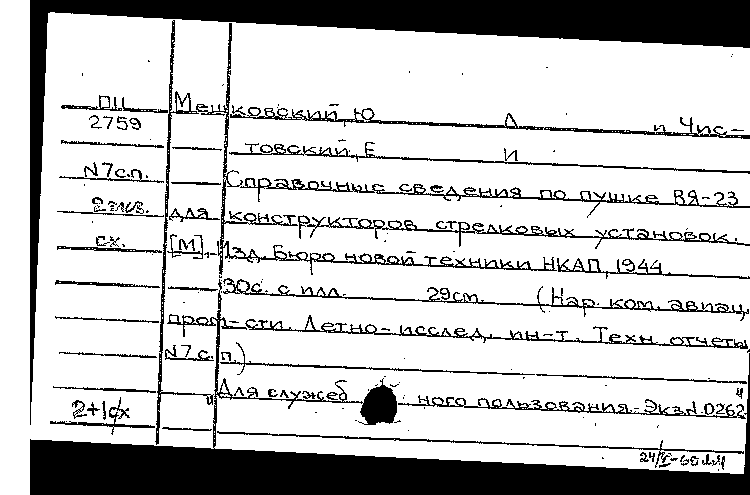 ПЦ Мешковский, Ю Л и Чис-
2759 товский, Е И
N7с.п. Справочные сведения по пушке ВЯ-23
2 экз. для конструкторов стрелковых установок.
сх. [М], Изд. Бюро новой техники НКАП, 1944.
30с. с илл. 29см. (Нар. ком. авиац.
пром-сти. Летно-исслед. ин-т. Техн. отчеты
N7 с.п.).
"Для служебного пользования". Экз.N.0262
2+1сх